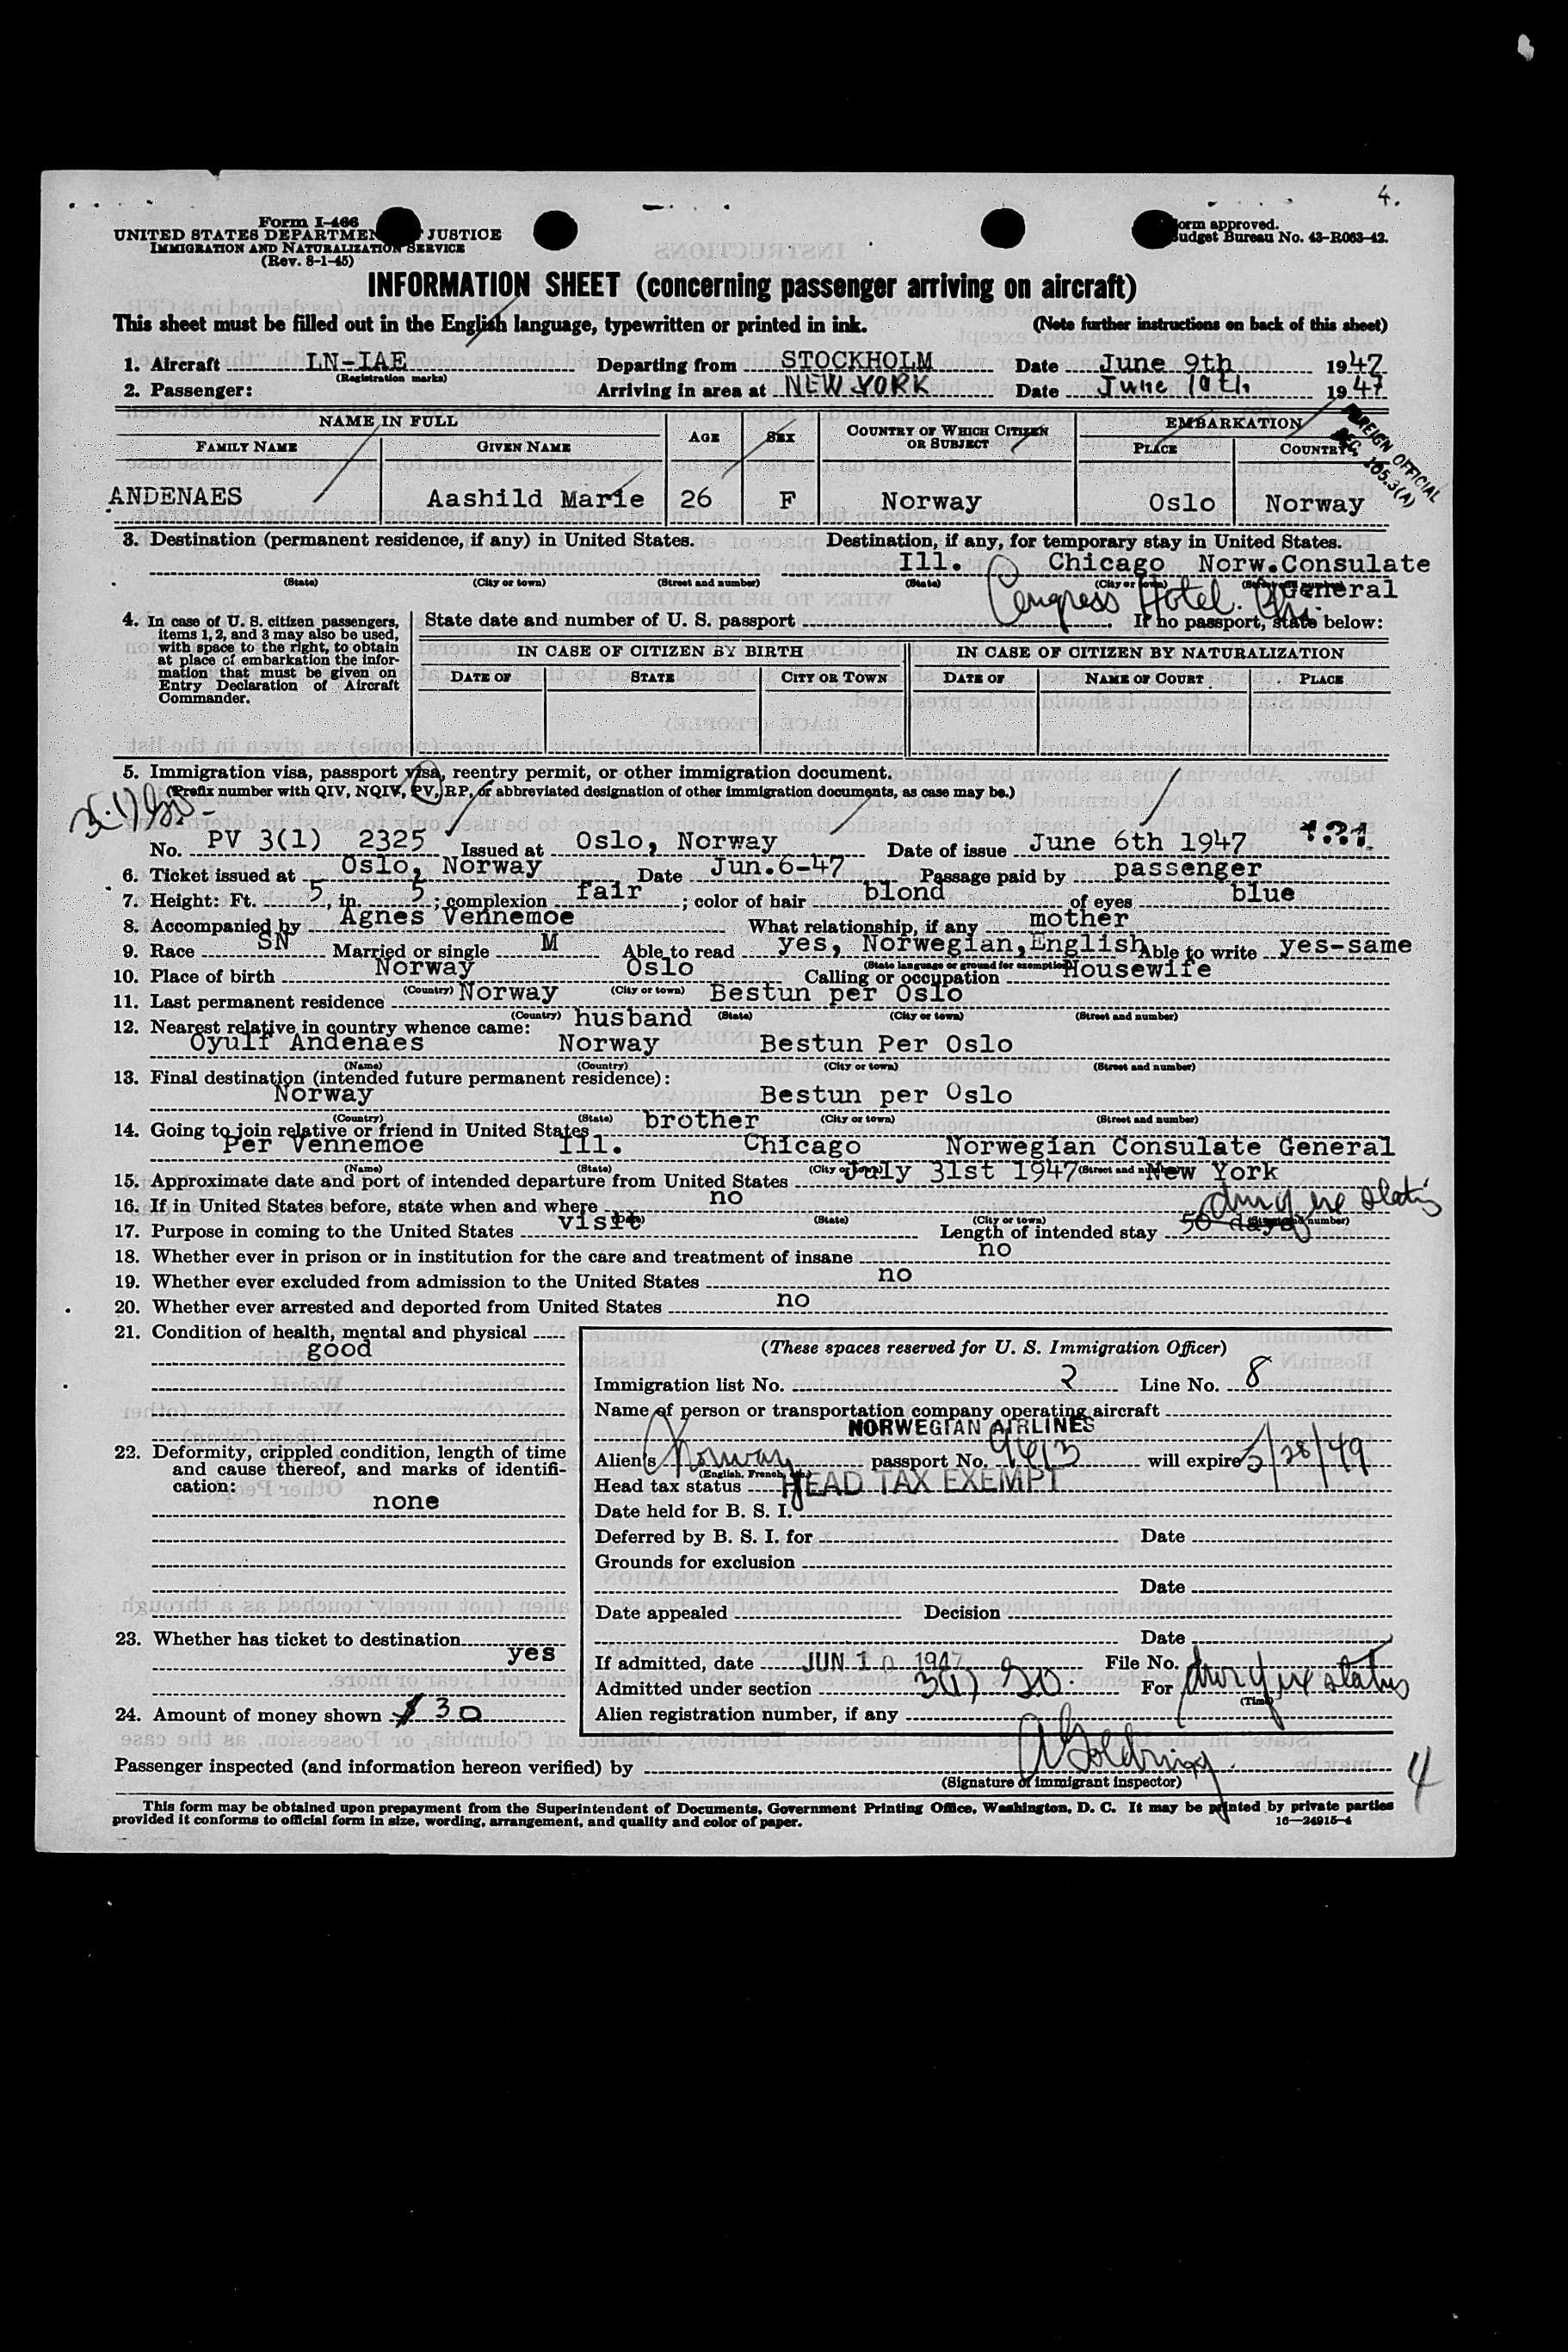 4.
Form I-466
UNITED STATES DEPARTMEN JUSTICE
IMMIGRATION AND NATURALIZATION SERVICE
(Rev. 8-1-45)
orm approved.
udget Bureau No. 43-R063-42.
INFORMATION SHEET (concerning passenger arriving on aircraft)
This sheet must be filled out in the English language, typewritten or printed in ink. (Note further instructions on back of this sheet)
1. Aircraft LN-IAE Departing from STOCKHOLM Date June 9th 1947
(Registration marks)
2. Passenger: Arriving in area at NEW YORK Date June 10th 1947
FOREIGN OFFICIAL
SEC. 105.3(A)
NAME IN FULL AGE SEX COUNTRY OF WHICH CITIZEN OR SUBJECT EMBARKATION
FAMILY NAME GIVEN NAME PLACE COUNTRY
ANDENAES Aashild Marie 26 F Norway Oslo Norway
3. Destination (permanent residence, if any) in United States. Destination, if any, for temporary stay in United States.
Ill. Chicago Norw.Consulate
(State) (City or town) (Street and number) (State) (City or town) (Street and number)
General
Congress Hotel.
4. In case of U. S. citizen passengers, items 1, 2, and 3 may also be used, with space to the right, to obtain at place of embarkation the information that must be given on Entry Declaration of Aircraft Commander.
State date and number of U. S. passport If no passport, state below:
IN CASE OF CITIZEN BY BIRTH IN CASE OF CITIZEN BY NATURALIZATION
DATE OF STATE CITY OR TOWN DATE OF NAME OF COURT PLACE
5. Immigration visa, passport visa, reentry permit, or other immigration document.
(Prefix number with QIV, NQIV, PV, RP, or abbreviated designation of other immigration documents, as case may be.)
No. PV 3(1) 2325 Issued at Oslo, Norway Date of issue June 6th 1947
6. Ticket issued at Oslo, Norway Date Jun.6-47 Passage paid by passenger
7. Height: Ft. 5, in. 5; complexion fair; color of hair blond of eyes blue
8. Accompanied by Agnes Vennemoe What relationship, if any mother
9. Race SN Married or single M Able to read yes, Norwegian,English Able to write yes-same
(State language or ground for exemption)
10. Place of birth Norway Oslo Calling or occupation Housewife
(Country) (City or town)
11. Last permanent residence Norway Bestun per Oslo
(Country) (State) (City or town) (Street and number)
12. Nearest relative in country whence came: husband
Oyulf Andenaes Norway Bestun Per Oslo
(Name) (Country) (City or town) (Street and number)
13. Final destination (intended future permanent residence):
Norway Bestun per Oslo
(Country) (State) (City or town) (Street and number)
14. Going to join relative or friend in United States brother
Per Vennemoe Ill. Chicago Norwegian Consulate General
(Name) (State) (City or town) (Street and number)
15. Approximate date and port of intended departure from United States July 31st 1947 New York
16. If in United States before, state when and where no
(State) (City or town) (Street and number)
17. Purpose in coming to the United States visit Length of intended stay 50 days
18. Whether ever in prison or in institution for the care and treatment of insane no
19. Whether ever excluded from admission to the United States no
20. Whether ever arrested and deported from United States no
21. Condition of health, mental and physical
good
22. Deformity, crippled condition, length of time and cause thereof, and marks of identification:
none
23. Whether has ticket to destination
yes
24. Amount of money shown $ 30
(These spaces reserved for U. S. Immigration Officer)
Immigration list No. 2 Line No. 8
Name of person or transportation company operating aircraft
NORWEGIAN AIRLINES
Alien's Norway passport No. 9413 will expire 5/28/49
(English, French, etc.)
Head tax status HEAD TAX EXEMPT
Date held for B. S. I.
Deferred by B. S. I. for Date
Grounds for exclusion
Date
Date appealed Decision
Date
If admitted, date JUN 10 1947 File No.
Admitted under section 3(1) For
(Time)
Alien registration number, if any
Passenger inspected (and information hereon verified) by A Goldring
(Signature of immigrant inspector)
4
This form may be obtained upon prepayment from the Superintendent of Documents, Government Printing Office, Washington, D. C. It may be printed by private parties
provided it conforms to official form in size, wording, arrangement, and quality and color of paper. 16—24915-4